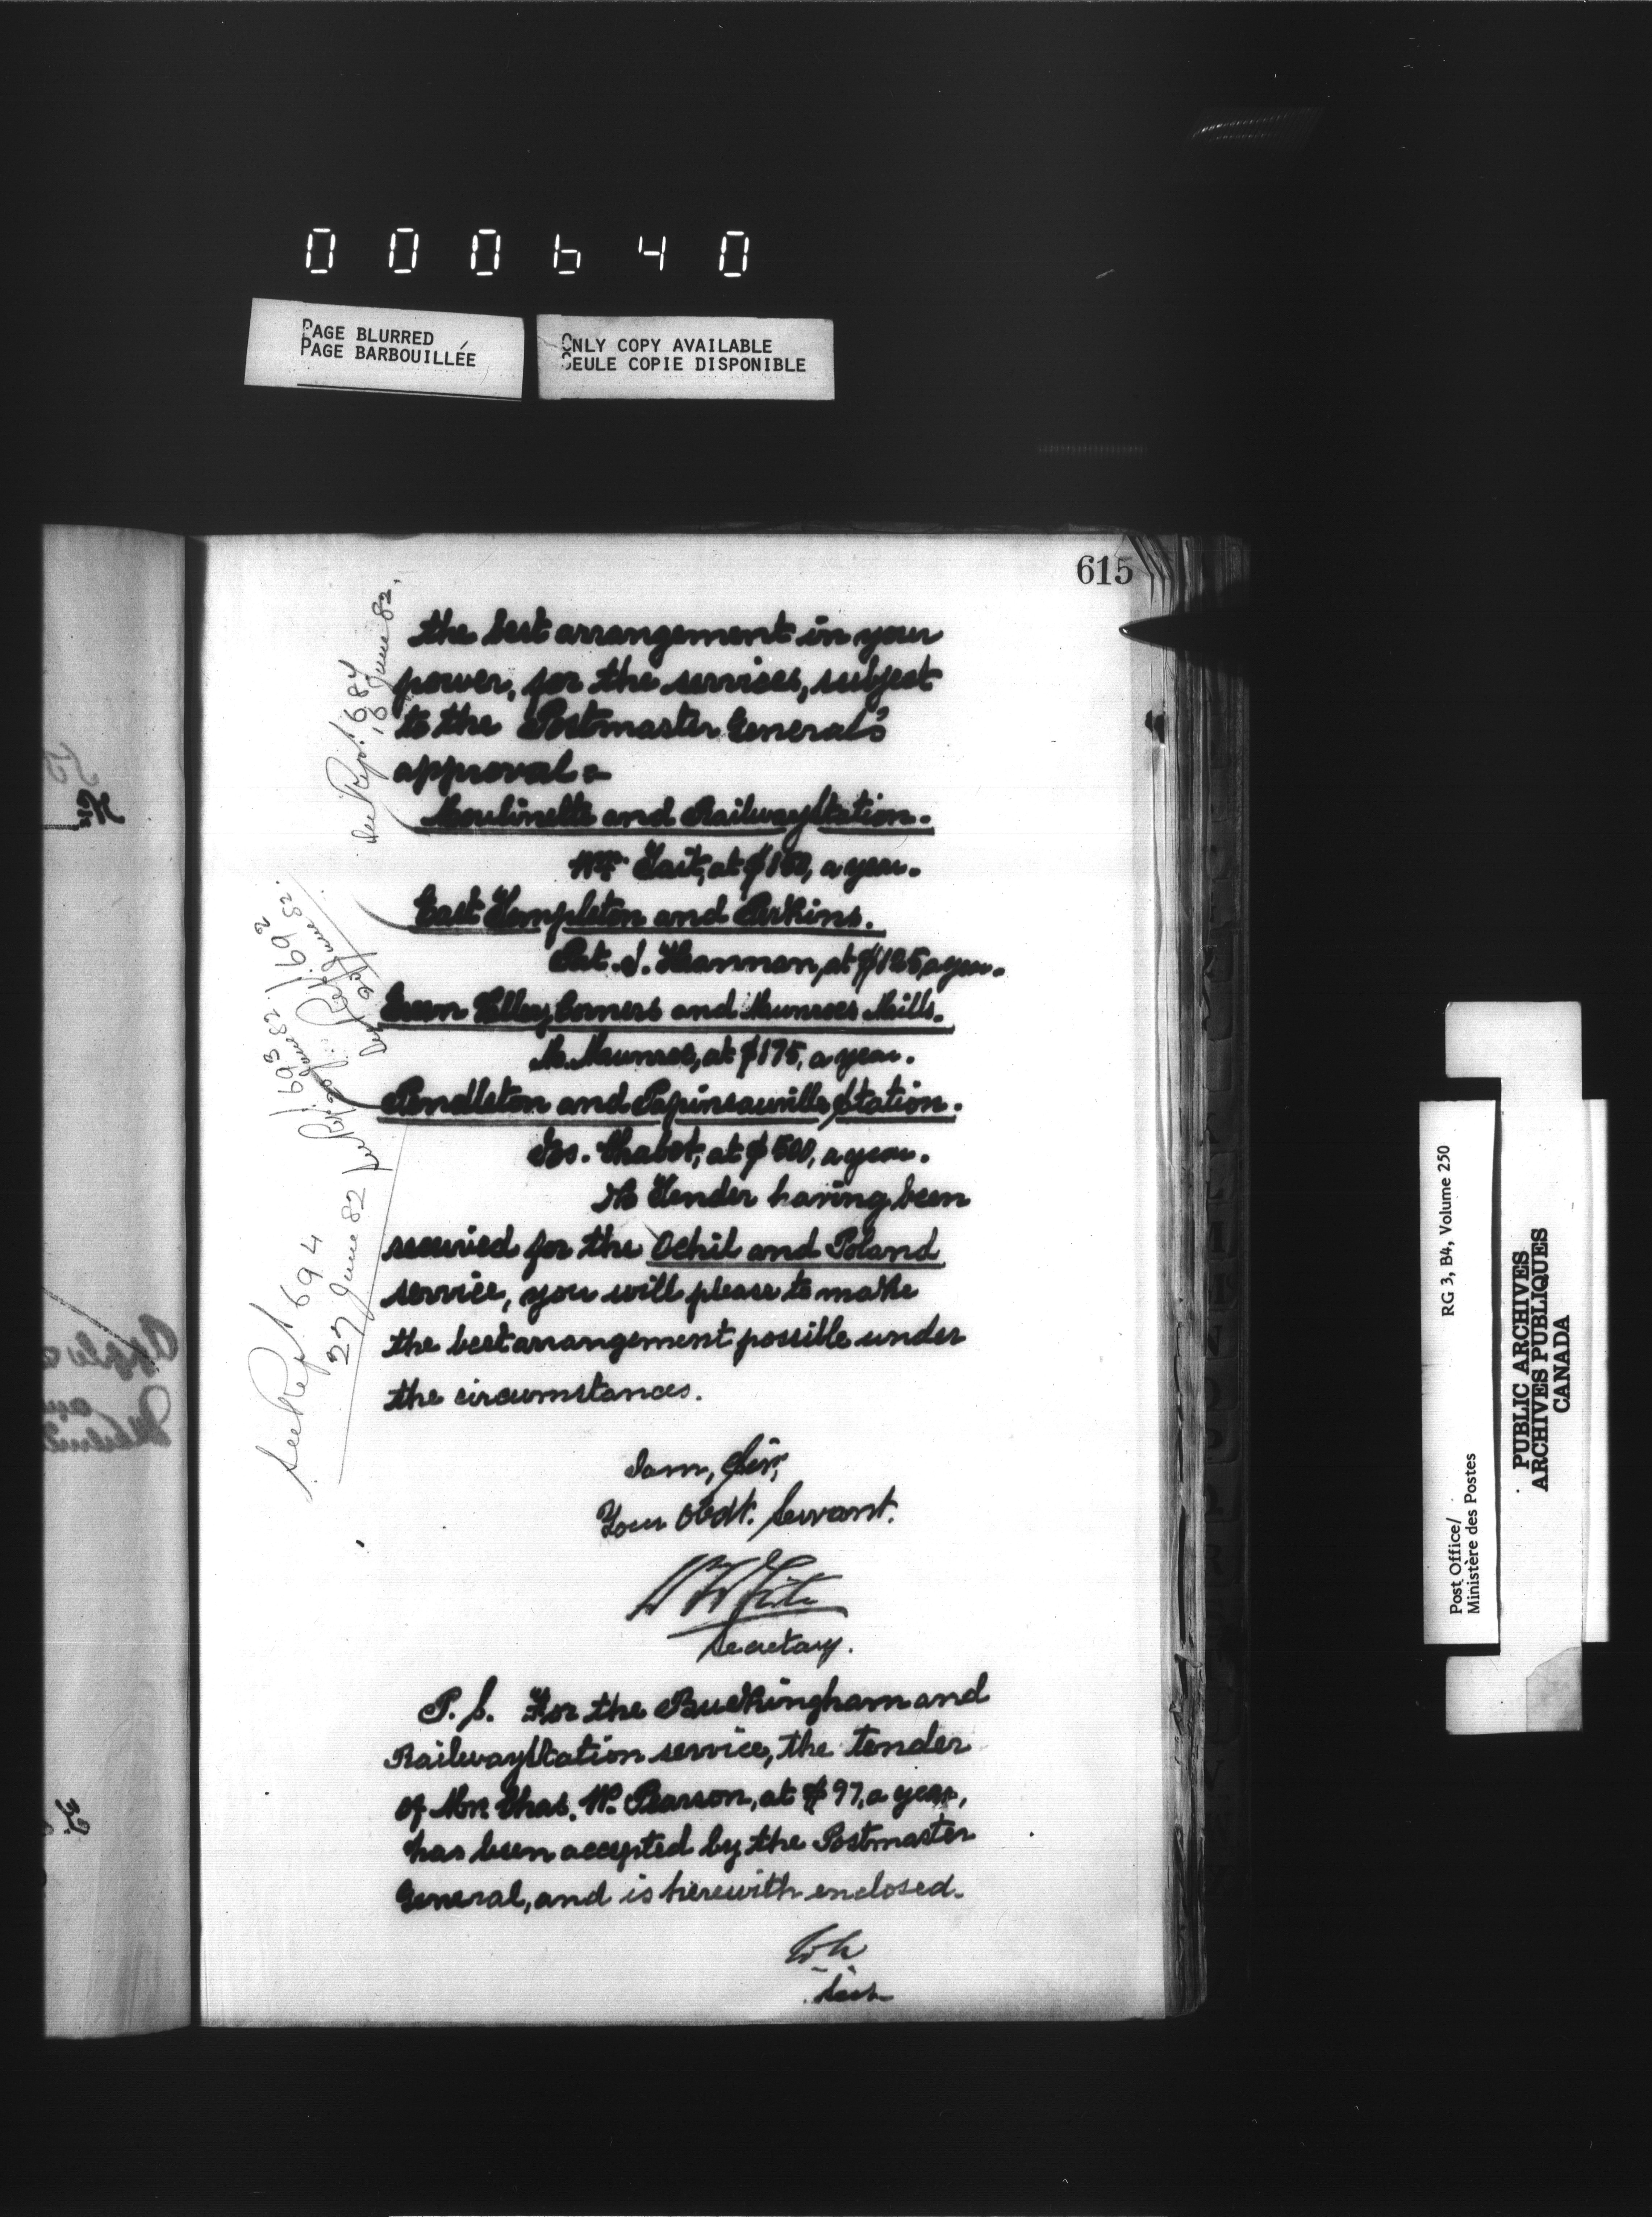 000640
PAGE BLURRED
PAGE BARBOUILLÉE
ONLY COPY AVAILABLE
SEULE COPIE DISPONIBLE
615
the best arrangement in your
power, for the services, subject
to the Postmaster General's
approval :-
Moulinette and Railway Station.
Wm. Tait, at $100, a year.
East Templeton and Perkins.
Pat. J. Hannon, at $125, a year.
Green Valley Corners and Munroes Mills.
M. Munroe, at $175, a year.
Pendleton and Papineauville Station.
Chabot, at $500, a year.
No Tender having been
received for the Ochil and Poland
service, you will please to make
the best arrangement possible under
the circumstances.
I am, Sir,
Your Obdt. Servant.
Secretary.
P.S. For the Buckingham and
Railway Station service, the tender
of Mr. Chas. W. Pearson, at $97, a year,
has been accepted by the Postmaster
General, and is herewith enclosed.
See Rept 684
16 June 82.
See Rept 692
See Rept 693
See Rept 694
27 June 82
Post Office/
Ministère des Postes
RG 3, B4, Volume 250
PUBLIC ARCHIVES
ARCHIVES PUBLIQUES
CANADA